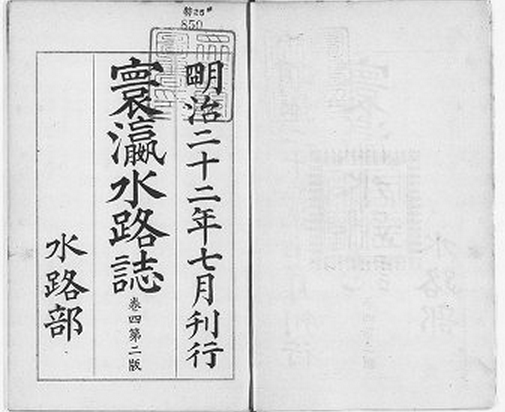 特25
850
明治二十二年七月刊行
寰瀛水路誌
巻四第二版
水路部